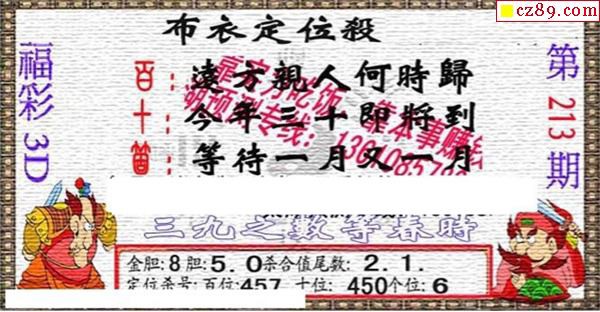 cz89.com
布衣定位殺
福彩3D
第213期
百：遠方親人何時歸
十：今年三十即將到
個：等待一月又一月
三九之數等春時
金胆:8胆:5.0杀合值尾数:2.1.
定位杀号:百位:457 十位:450个位:6